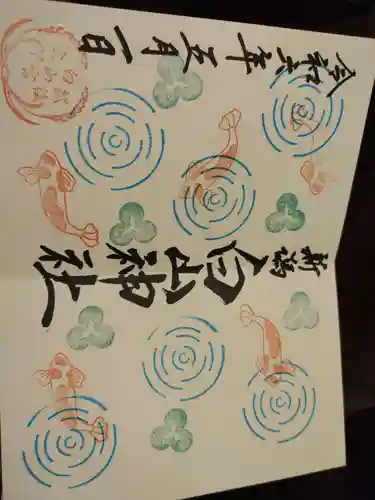 新潟白山神社
令和六年五月一日